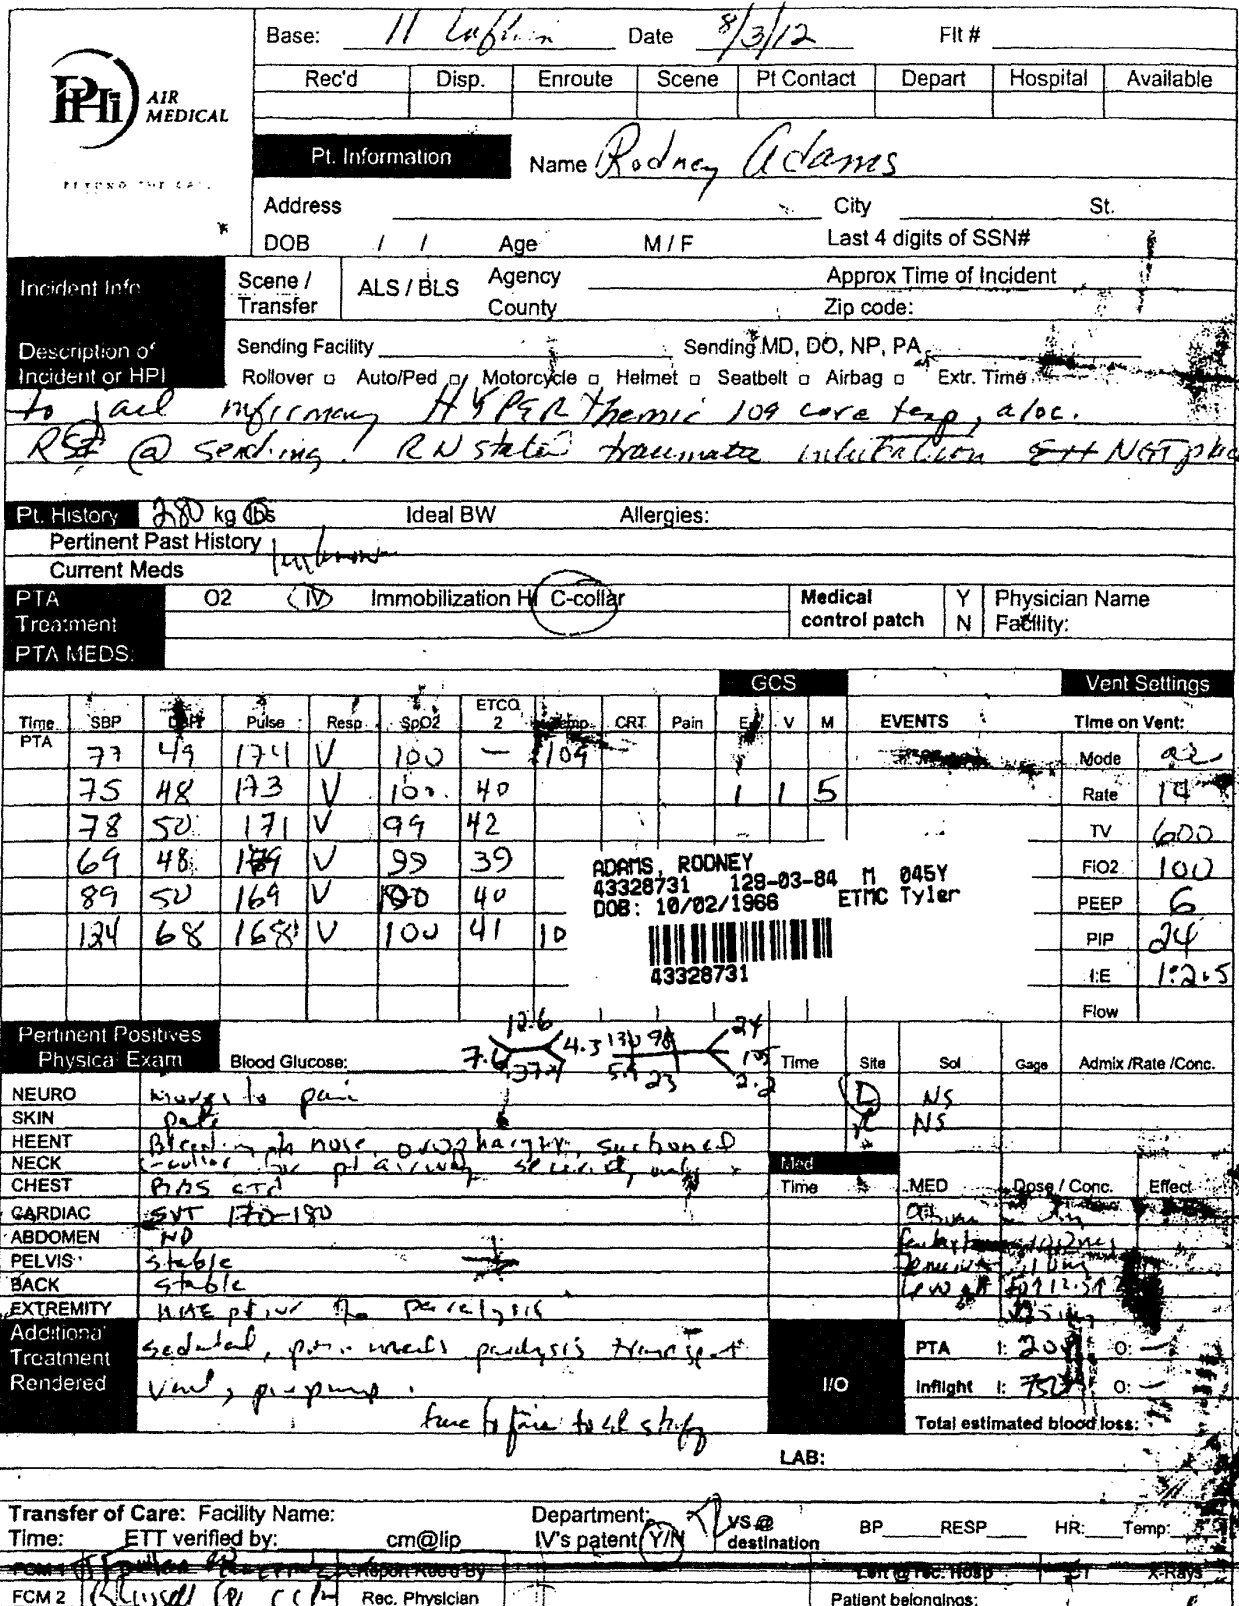 Base: 11 Date 8/3/12 Flt #
PHi AIR MEDICAL
BEYOND THE CALL
Rec'd Disp. Enroute Scene Pt Contact Depart Hospital Available
Pt. Information Name Rodney Adams
Address City St.
DOB / / Age M / F Last 4 digits of SSN#
Incident Info Scene / Transfer ALS / BLS Agency Approx Time of Incident
County Zip code:
Description of Incident or HPI Sending Facility Sending MD, DO, NP, PA
Rollover □ Auto/Ped □ Motorcycle □ Helmet □ Seatbelt □ Airbag □ Extr. Time
to jail infirmary HYPERthemic 109 core temp, aloc.
RSI @ sending! RN stated traumatic intubation ETT NGT
Pt. History 280 kg lbs Ideal BW Allergies:
Pertinent Past History unknown
Current Meds
PTA Treatment O2 IV Immobilization HI C-collar Medical control patch Y N Physician Name
Facility:
PTA MEDS:
GCS Vent Settings
Time SBP DBP Pulse Resp SpO2 ETCO2 Temp CRT Pain E V M EVENTS Time on Vent:
PTA 77 49 174 V 100 — 109 Mode ac
75 48 173 V 100 40 1 1 5 Rate 14
78 50 171 V 99 42 TV 600
69 48 179 V 99 39 FiO2 100
89 50 169 V 100 40 PEEP 6
124 68 168 V 100 41 10 PIP 24
I:E 1:2.5
Flow
ADAMS, RODNEY
43328731 128-03-84 M 045Y
DOB: 10/02/1966 ETMC Tyler
43328731
Pertinent Positives Physical Exam Blood Glucose: 7.6 12.6 37.4 4.3 130 98 24 5.9 23 2.2 Time Site Sol Gage Admix /Rate /Conc.
NEURO moves to pain L NS
SKIN Pale R NS
HEENT Bleeding nose, suctioned
NECK c-collar for pt airway security only
CHEST BBS CTA
Med
Time MED Dose / Conc. Effect
CARDIAC SVT 170-180
ABDOMEN ND
PELVIS stable
BACK stable
EXTREMITY MAE prior to paralysis
Additional Treatment Rendered sedated, pain meds paralysis transport
Vent, pump.
I/O PTA I: O: —
Inflight I: 750 O: —
Total estimated blood loss:
LAB:
Transfer of Care: Facility Name: Department:
Time: ETT verified by: cm@lip IV's patent Y/N VS @ destination BP RESP HR: Temp:
FCM 1 Report Rec'd By Left @ rec. Hosp CT X-Rays
FCM 2 Rec. Physician Patient belongings: